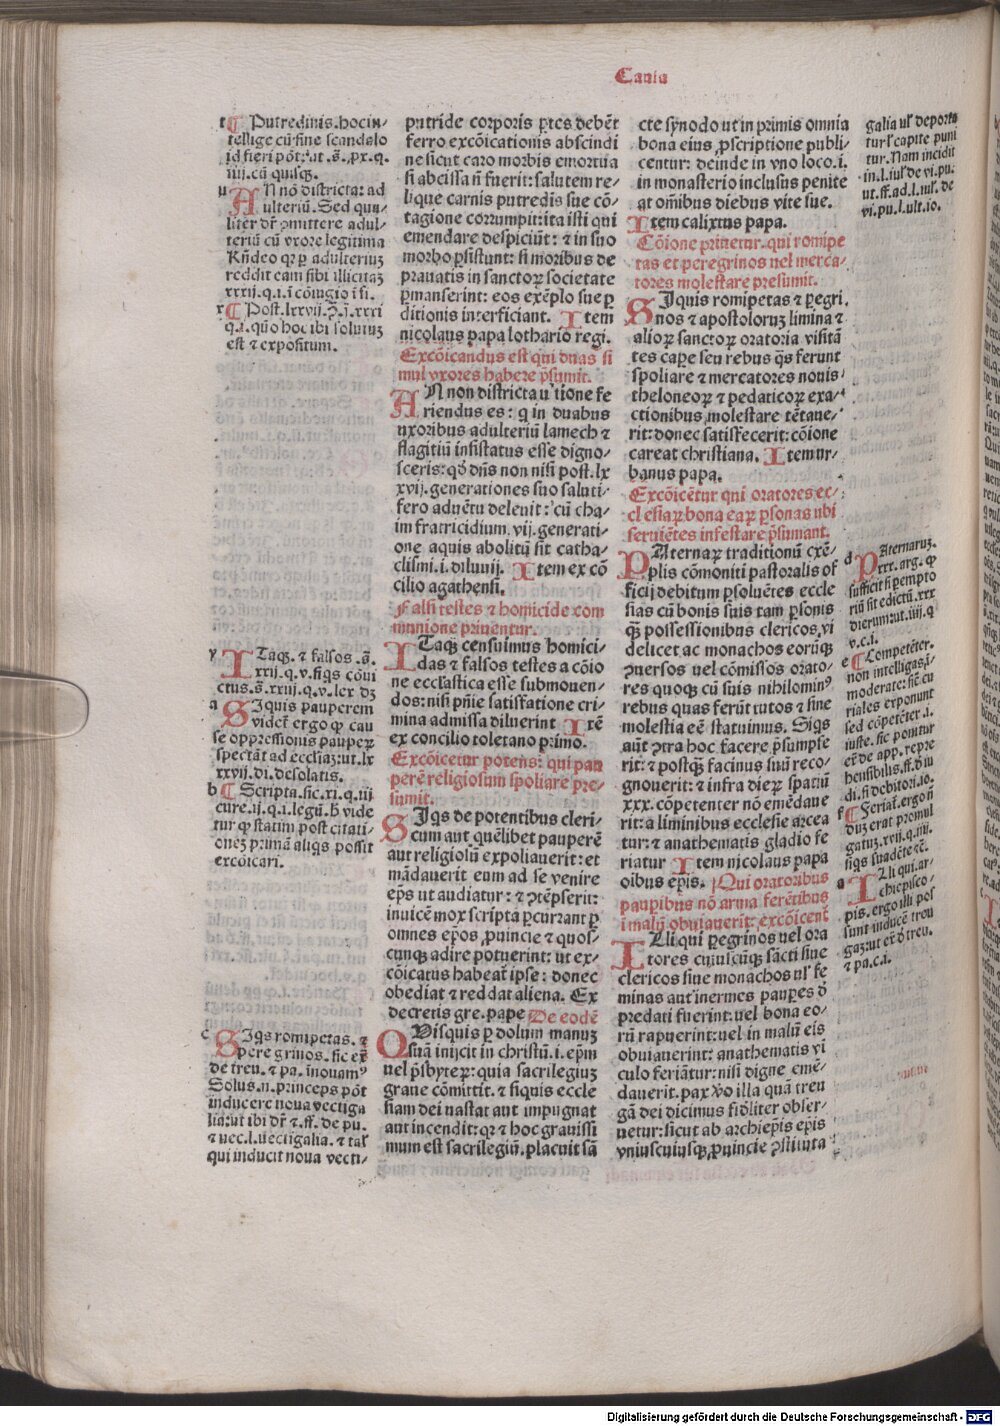 Causa
t ¶ Putredinis. hoc in-
tellige cū sine scandalo
id fieri pōt: ut .s. .px. q.
iiij. cū quisq̄.
u AN nō districta: ad
ulteriū. Sed qua-
liter dr̄ ꝯmittere adul-
teriū cū vxore legitima
Rn̄deo q̱ p̱ adulteriuꝫ
reddit eam sibi illicitaꝫ
xxxij. q. i. i cōiugio i si.
x ¶ Post. lxxvij. P̄. j. xxxi
q. i. qn̄o hoc ibi soluiuꝫ
est ⁊ expositum.
y ITaq̄. ⁊ falsos .s.
xxij. q. v. siq̄s cōui
ctus. s. xxij. q. v. lex dꝫ
a SIquis pauperem
videt ergo ꝙ cau
se oppressionis pauperꝝ
spectāt ad eccl̄iaꝫ: ut. lx
xxvij. di. desolatis.
b ¶ Scripta. sic. xi. q. iij
cure. ij. q. i. legū. h̄ vide
tur ꝙ statim post citati-
oneꝫ primā aliq̄s possit
excōicari.
c SIq̄s romipetas. ⁊
peregrinos. sic ex̄
de treu. ⁊ pa. inouamꝰ
Solus. n. princeps pōt
inducere noua vectiga
lia: ut ibi dr̄ ⁊ .ff. de pu.
⁊ uec. l. uectigalia. ⁊ tal̓
qui inducit noua vecti-
putride corporis ꝑtes debēt
ferro excōicationis abscindi
ne sicut caro morbis emortua
si abscissa n̄ fuerit: salutem re-
lique carnis putredis sue cō-
tagione corrumpit: ita isti qui
emendare despiciūt: ⁊ in suo
morbo ꝑsistunt: si moribus de
prauatis in sanctorꝝ societate
ꝑmanserint: eos exēplo sue ꝑ
ditionis interficiant. Item
nicolaus papa lothario regi.
Excōicandus est qui duas si
mul vxores habere p̄sumit.
AN non districta u tione fe
riendus es: q̱ in duabus
uxoribus adulteriū lamech ⁊
flagitiū insistatus esse digno-
sceris: qd̓ dn̄s non nisi post. lx
xvij. generationes suo saluti-
fero aduētu deleuit: cū cha-
im fratricidium. vij. generati-
one aquis abolitū sit catha-
clismi. i. diluuij. Item ex cō
cilio agathensi.
Falsi testes ⁊ homicide com
munione priuentur.
ITaq̄ censuimus homici-
das ⁊ falsos testes a cōio
ne eccl̄astica esse submouen-
dos: nisi pn̄ie satisfatione cri-
mina admissa diluerint Itē
ex concilio toletano primo.
Excōicetur potens: qui pau
perē religiosum spoliare pre-
sumit.
SIq̄s de potentibus cleri-
cum aut quēlibet pauperē
aut religiosū expoliauerit: et
mādauerit eum ad se venire
ep̄s ut audiatur: ⁊ ꝯtēpserit:
inuicē mox scripta ꝑcurrant ꝑ
omnes ep̄os ꝓuincie ⁊ quos-
cunq̄ adire potuerint: ut ex-
cōicatus habeat̄ ipse: donec
obediat ⁊ reddat aliena. Ex
decretis gre. pape De eodē
QVisquis ꝑ dolum manuꝫ
suā inijcit in christū. i. ep̄m
uel p̄sbyterꝝ: quia sacrilegiuꝫ
graue cōmittit. ⁊ siquis eccle
siam dei uastat aut impugnat
aut incendit: qꝛ ⁊ hoc grauissi
mum est sacrilegiū. placuit sā
cte synodo ut in primis omnia
bona eius ꝓscriptione publi-
centur: deinde in vno loco. i.
in monasterio inclusus penite
at omībus diebus vite sue.
Item calixtus papa.
Cōione priuetur. qui romipe
tas et peregrinos uel merca-
tores molestare presumit.
SIquis romipetas ⁊ peregri.
nos ⁊ apostoloruꝫ limina ⁊
aliorꝝ sanctorꝝ oratoria visitā
tes caꝑe seu rebus q̄s ferunt
spoliare ⁊ mercatores nouis
theloneorꝝ ⁊ pedaticorꝝ exa-
ctionibus molestare tētaue-
rit: donec satisfecerit: cōione
careat christiana. Item ur-
banus papa.
Excōicētur qui oratores ec-
cl̄esiaꝝ bona eaꝝ ꝑsonas ubi
seruiētes infestare p̄sumant.
PAternaꝝ traditionū exē-
plis cōmoniti pastoralis of
ficij debitum ꝑsoluētes eccle
sias cū bonis suis tam ꝑsonis
q̄ꝫ possessionibus clericos, vi
delicet ac monachos eorūq̄
ꝯuersos uel cōmissos orato-
res quoq̄ cū suis nihilominꝰ
rebus quas ferūt tutos ⁊ sine
molestia eē statuimus. Siq̄s
aūt ꝯtra hoc facere p̄sumpse
rit: ⁊ postq̄ꝫ facinus suū reco-
gnouerit: ⁊ infra dieꝝ spatiū
xxx. cōpetenter nō emēdaue
rit: a liminibus ecclesie arcea
tur: ⁊ anathematis gladio fe
riatur Item nicolaus papa
oibus ep̄is. Qui oratoribus
pauꝑibus nō arma ferētibus
i malū obuiauerit: excōicent̄
ILli qui ꝑegrinos uel ora
tores cuiuscūq̄ sācti siue
clericos siue monachos ul̓ fe
minas aut inermes pauꝑes d̓
predati fuerint: uel bona eo-
rū rapuerint: uel in malū eis
obuiauerint: anathematis vī
culo feriātur: nisi digne emē-
dauerit. pax v̓o illa quā treu
gā dei dicimus fid̓liter obser-
uetur: sicut ab archiep̄is ep̄is
vniuscuiusq̄ ꝓuincie ꝯstituta
galia ul̓ deporta
tur ł capite puni
tur. Nam incidit
in. l. iul̓ de vi. pu.
ut. ff. ad. l. iul̓. de
vi. pu. l. ult. io.
d PAternaruꝫ.
xxx. arg. ꝙ
sufficit si pempto
riū sit edictū. xxx
dierum: ut. iiij. q
v. c. i.
e ¶ Competēter.
non intelligas. i.
moderate: sic̄ cu
riales exponunt
sed cōpetēter. i.
iuste. sic ponitur
ex̄ de app. repre
hensibilis. ff. d̓ iu
di. si debitori. io.
f ¶ Feriat̄. ergo n̄
duꝫ erat promul
gatuꝫ. xvij. q. iiij.
siq̄s suadēte ꝛc̄.
a ILli qui. ar-
chiepisco-
pis. ergo illi pos
sunt inducē treu
gaꝫ: ut ex̄ d̓ treu.
⁊ pa. c. i.
Digitalisierung gefördert durch die Deutsche Forschungsgemeinschaft - DFG